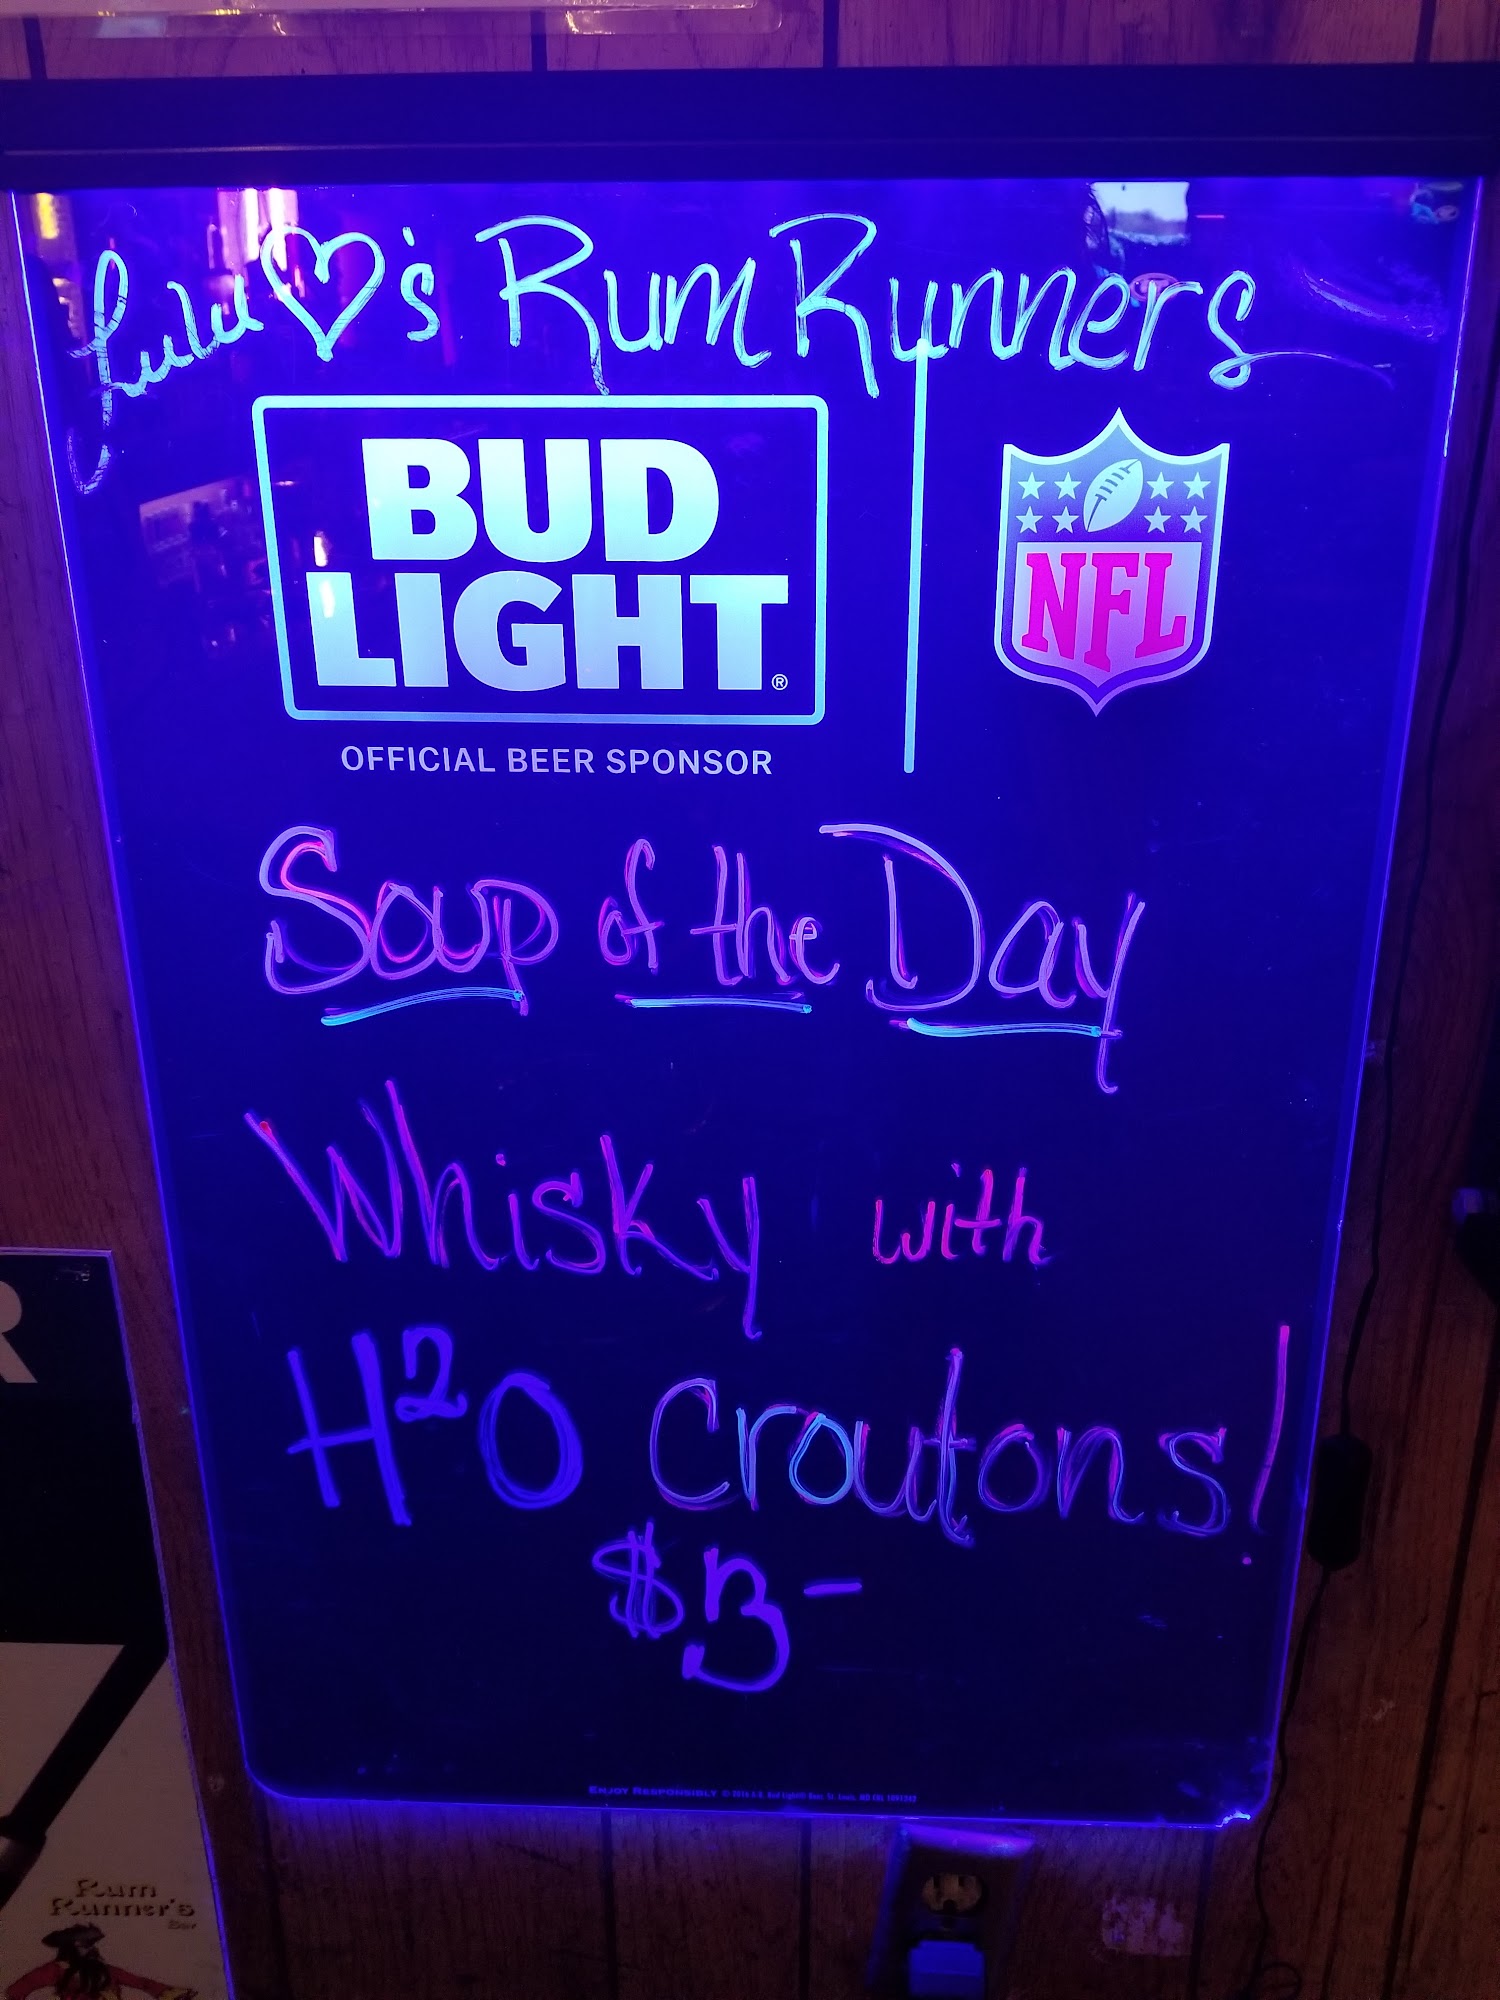 Lulu♡'s Rum Runners
BUD
LIGHT®
OFFICIAL BEER SPONSOR
NFL
Soup of the Day
Whisky with
H²O Croutons!
$3-
ENJOY RESPONSIBLY
R
Rum
Runner's
Bar